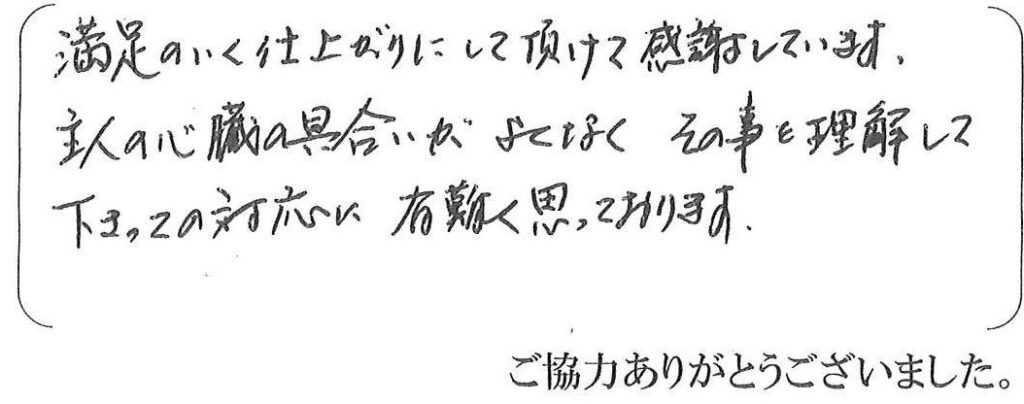 満足のいく仕上がりにして頂けて感謝しています.
主人の心臓の具合いが よくなく その事を理解して
下さっての対応に 有難く思っております.
ご協力ありがとうございました。